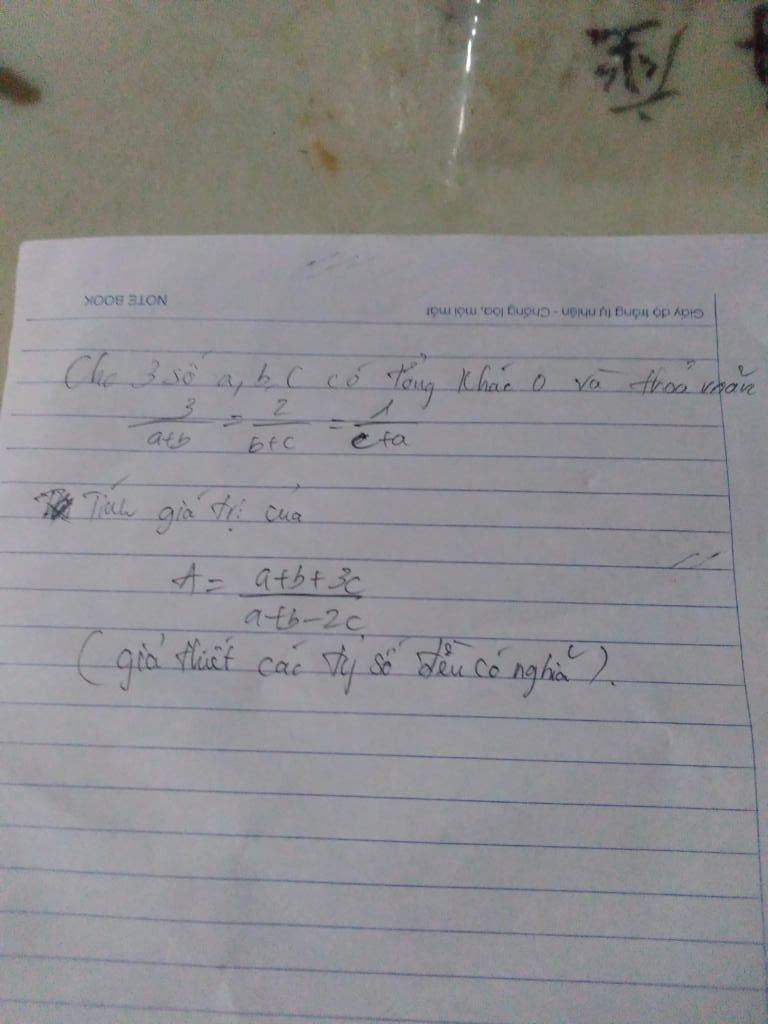 NOTE BOOK
Giấy độ trắng tự nhiên - Chống lóa, mỏi mắt
Cho 3 số a, b, c có tổng khác 0 và thoả mãn
3/(a+b) = 2/(b+c) = 1/(c+a)
Tính giá trị của
A = (a+b+3c)/(a+b-2c)
(giả thiết các tỷ số đều có nghĩa).